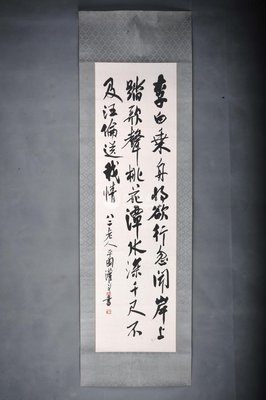 李白乘舟将欲行忽闻岸上
踏歌聲桃花潭水深千尺不
及汪倫送我情
八二老人